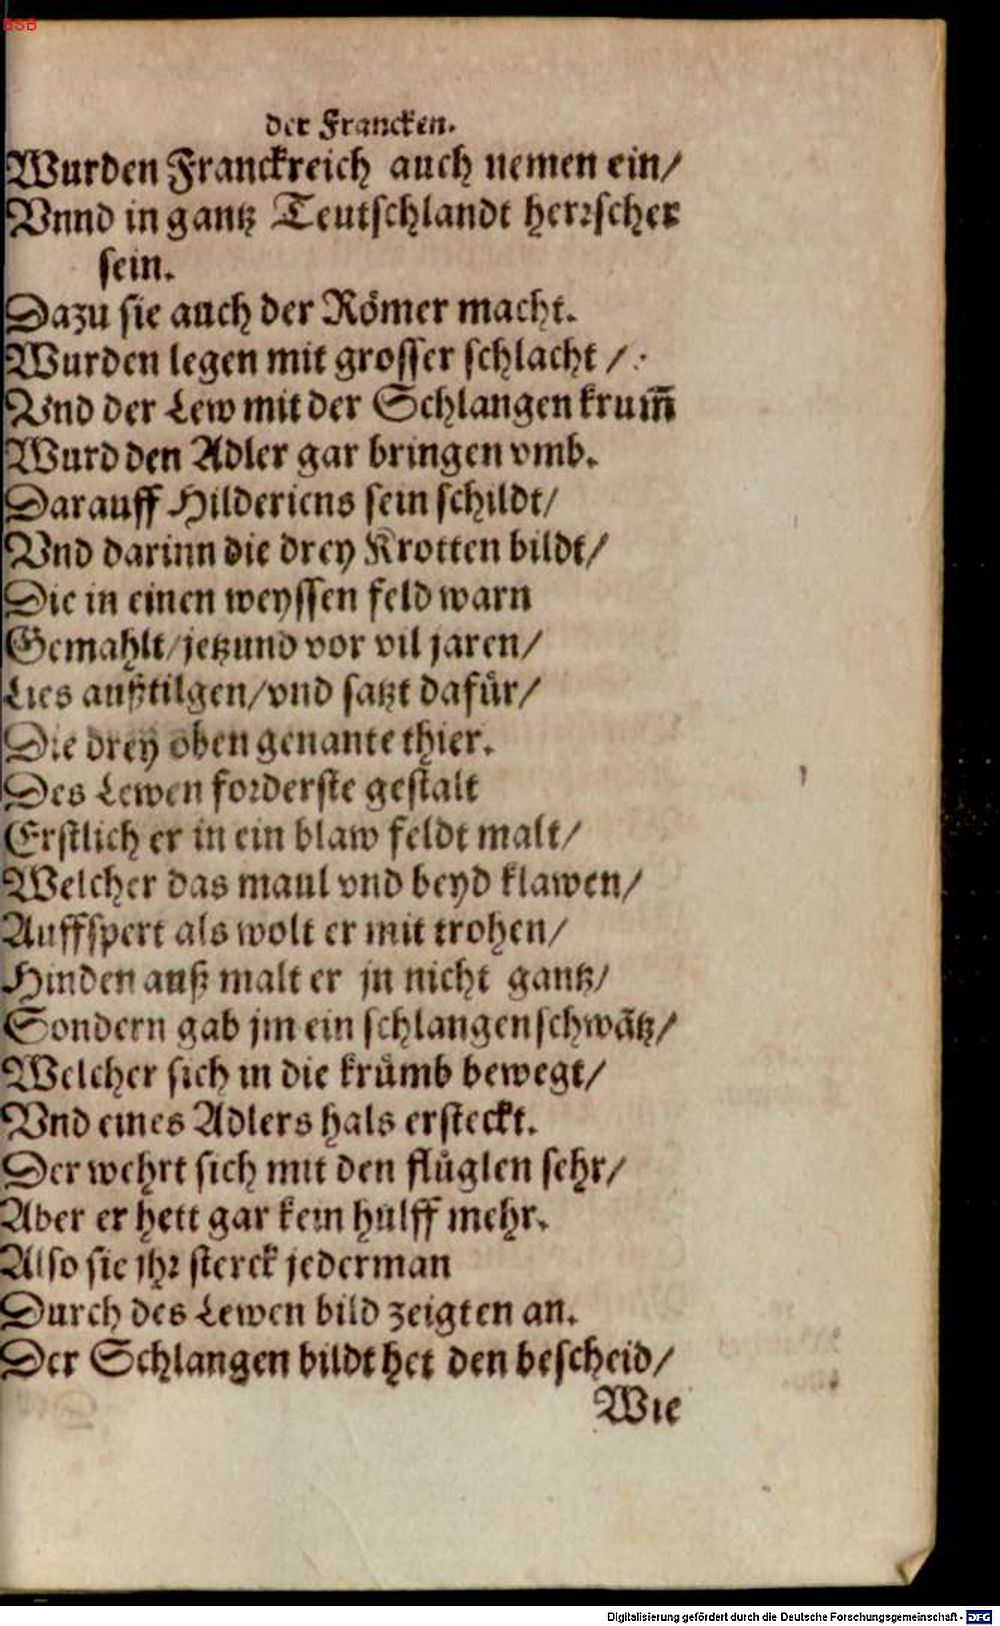 BSB
der Francken.
Wurden Franckreich auch nemen ein/
Vnnd in gantz Teutschlandt herrscher
sein.
Dazu sie auch der Römer macht.
Wurden legen mit grosser schlacht /.
Vnd der Lew mit der Schlangen krum̃
Wurd den Adler gar bringen vmb.
Darauff Hildericus sein schildt/
Vnd darinn die drey Krotten bildt/
Die in einen weyssen feld warn
Gemahlt/jetzund vor vil jaren/
Lies außtilgen/vnd satzt dafür/
Die drey oben genante thier.
Des Lewen forderste gestalt
Erstlich er in ein blaw feldt malt/
Welcher das maul vnd beyd klawen/
Auffspert als wolt er mit trohen/
Hinden auß malt er jn nicht gantz/
Sondern gab jm ein schlangen schwätz/
Welcher sich in die krümb bewegt/
Vnd eines Adlers hals ersteckt.
Der wehrt sich mit den flüglen sehr/
Aber er hett gar kein hülff mehr.
Also sie jhr sterck jederman
Durch des Lewen bild zeigten an.
Der Schlangen bildt het den bescheid/
Wie
Digitalisierung gefördert durch die Deutsche Forschungsgemeinschaft - DFG